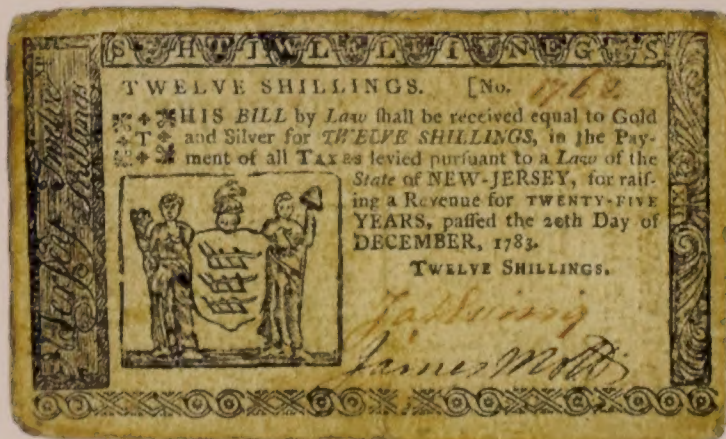 S H T I W L E L V I N E G S
TWELVE SHILLINGS. [No. 1762
THIS BILL by Law ſhall be received equal to Gold
and Silver for TWELVE SHILLINGS, in the Pay-
ment of all TAXES levied purſuant to a Law of the
State of NEW-JERSEY, for raiſ-
ing a Revenue for TWENTY-FIVE
YEARS, paſſed the 20th Day of
DECEMBER, 1783.
TWELVE SHILLINGS.
James Mott
Jerſey
Twelve
Shillings